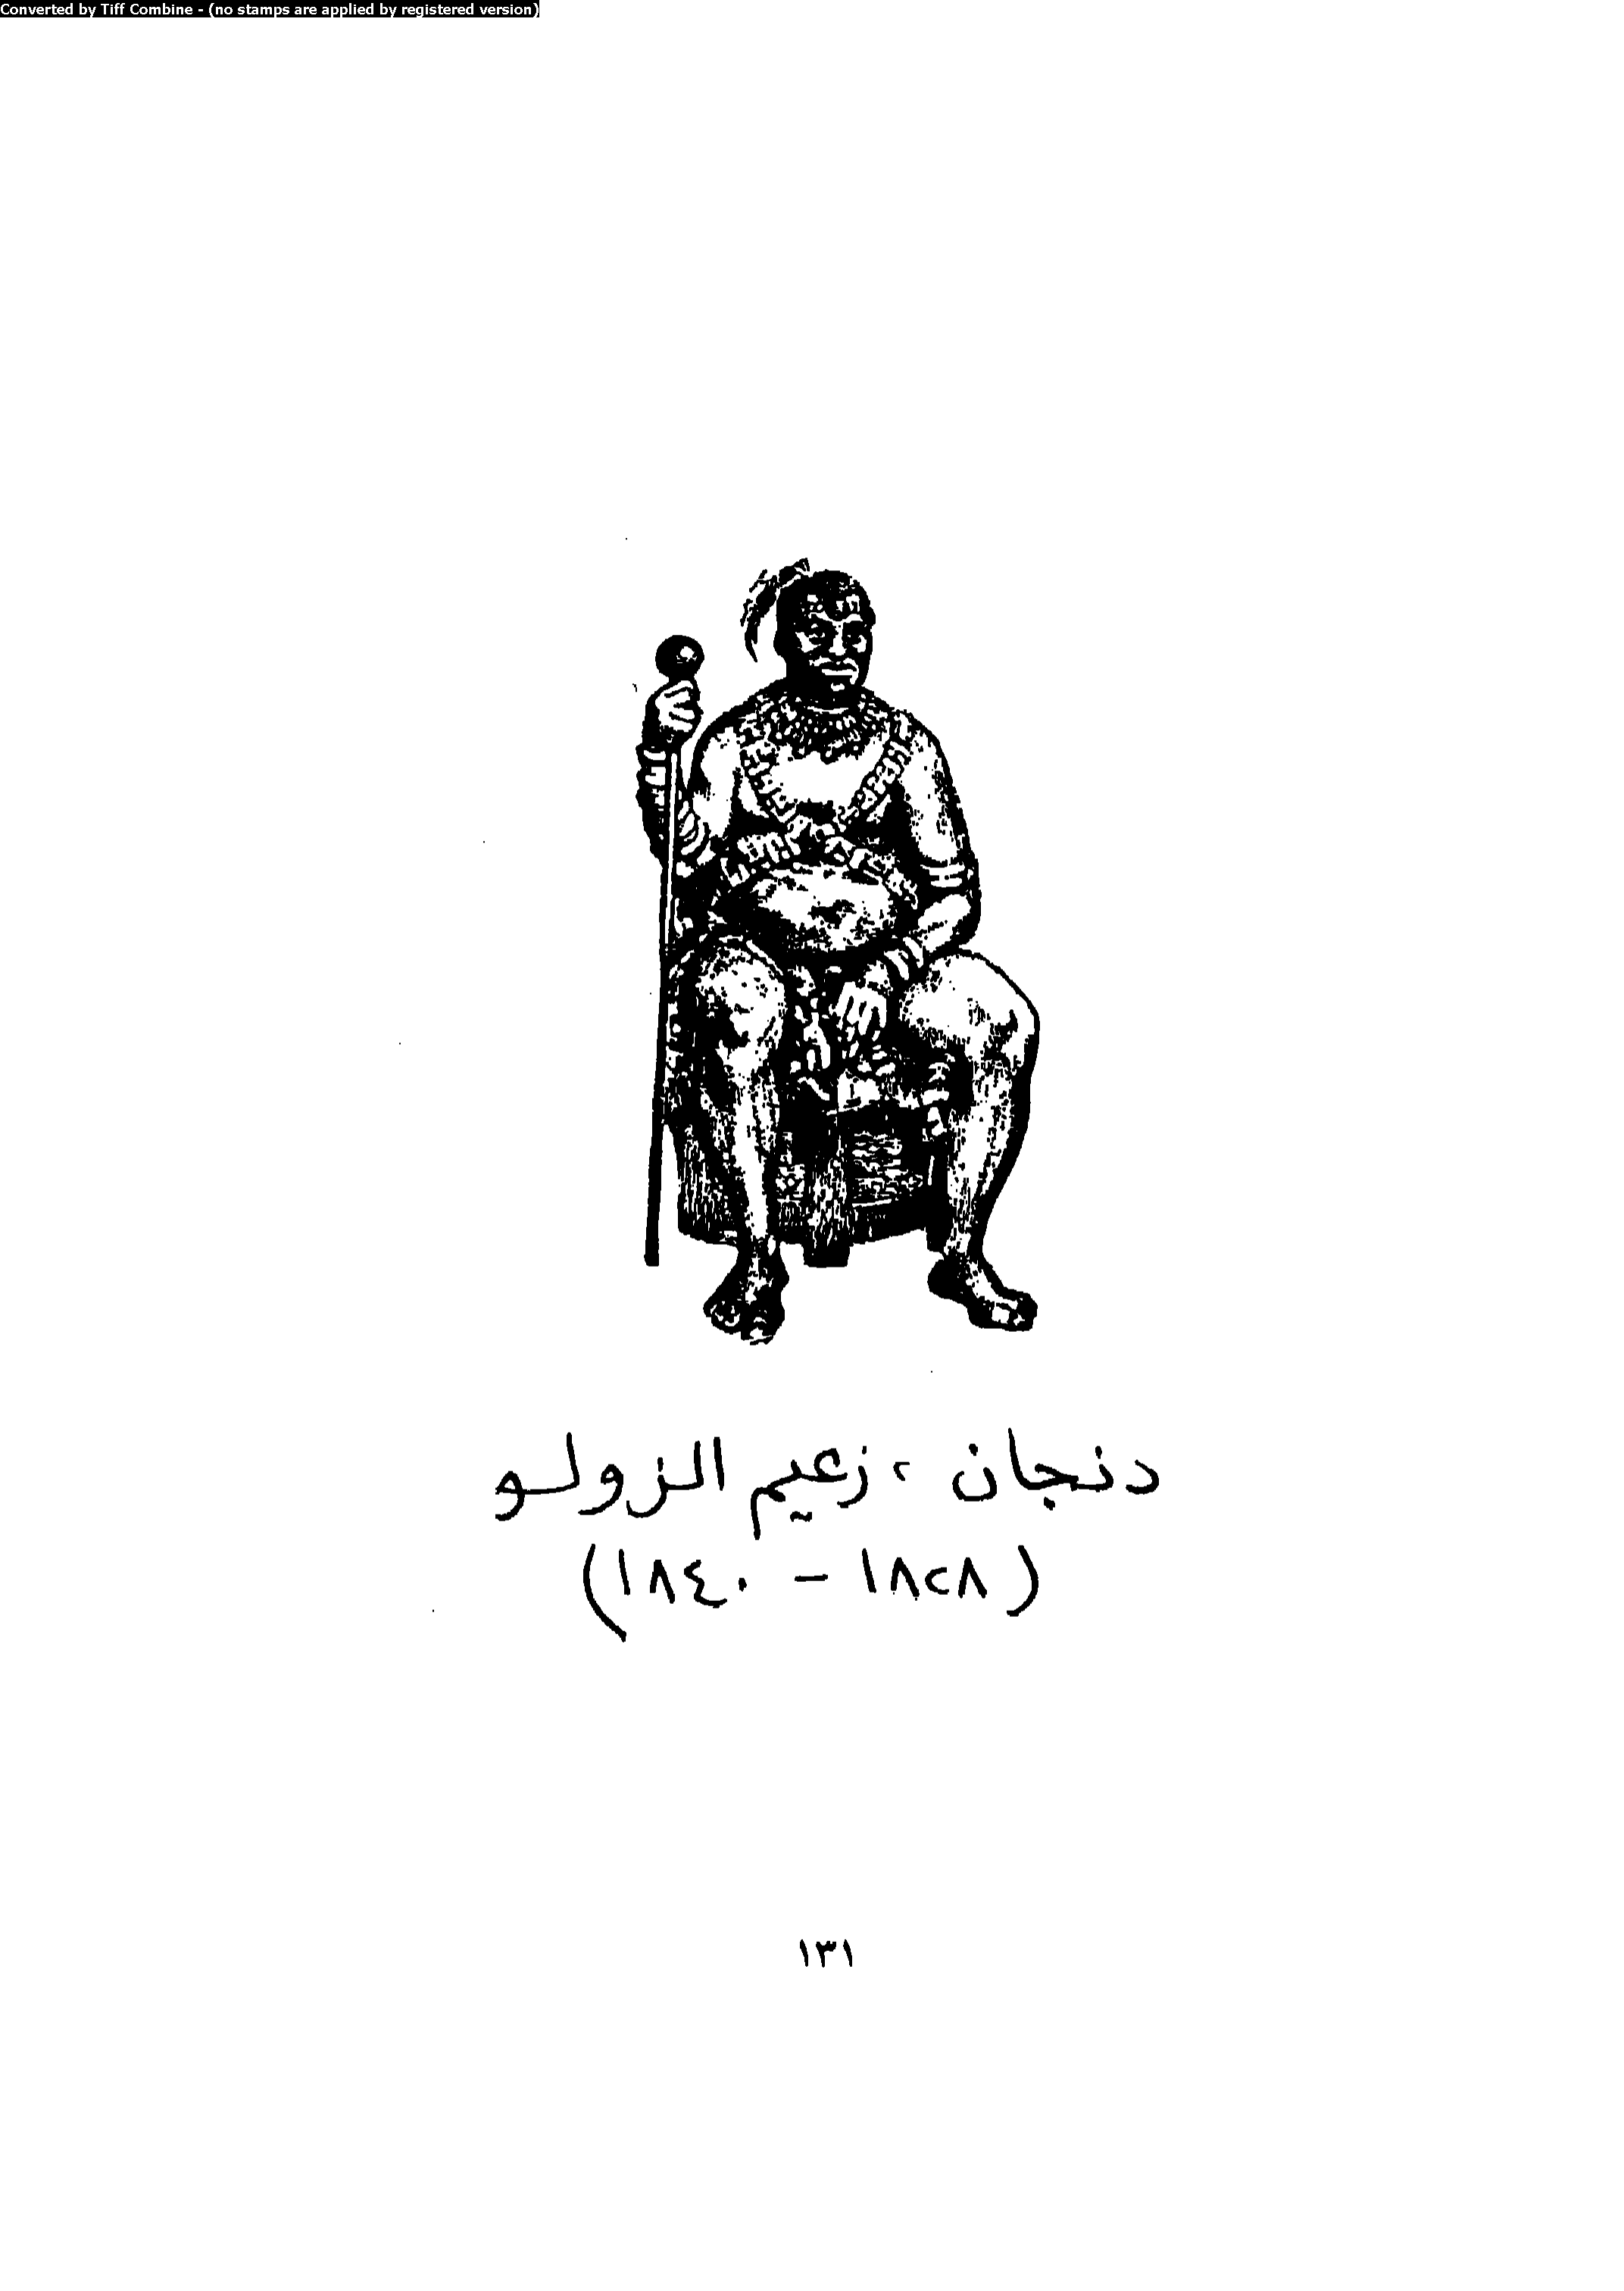 Converted by Tiff Combine - (no stamps are applied by registered version)
دنجان ، زعيم الزولو
(١٨٢٨ - ١٨٤٠)
١٣١